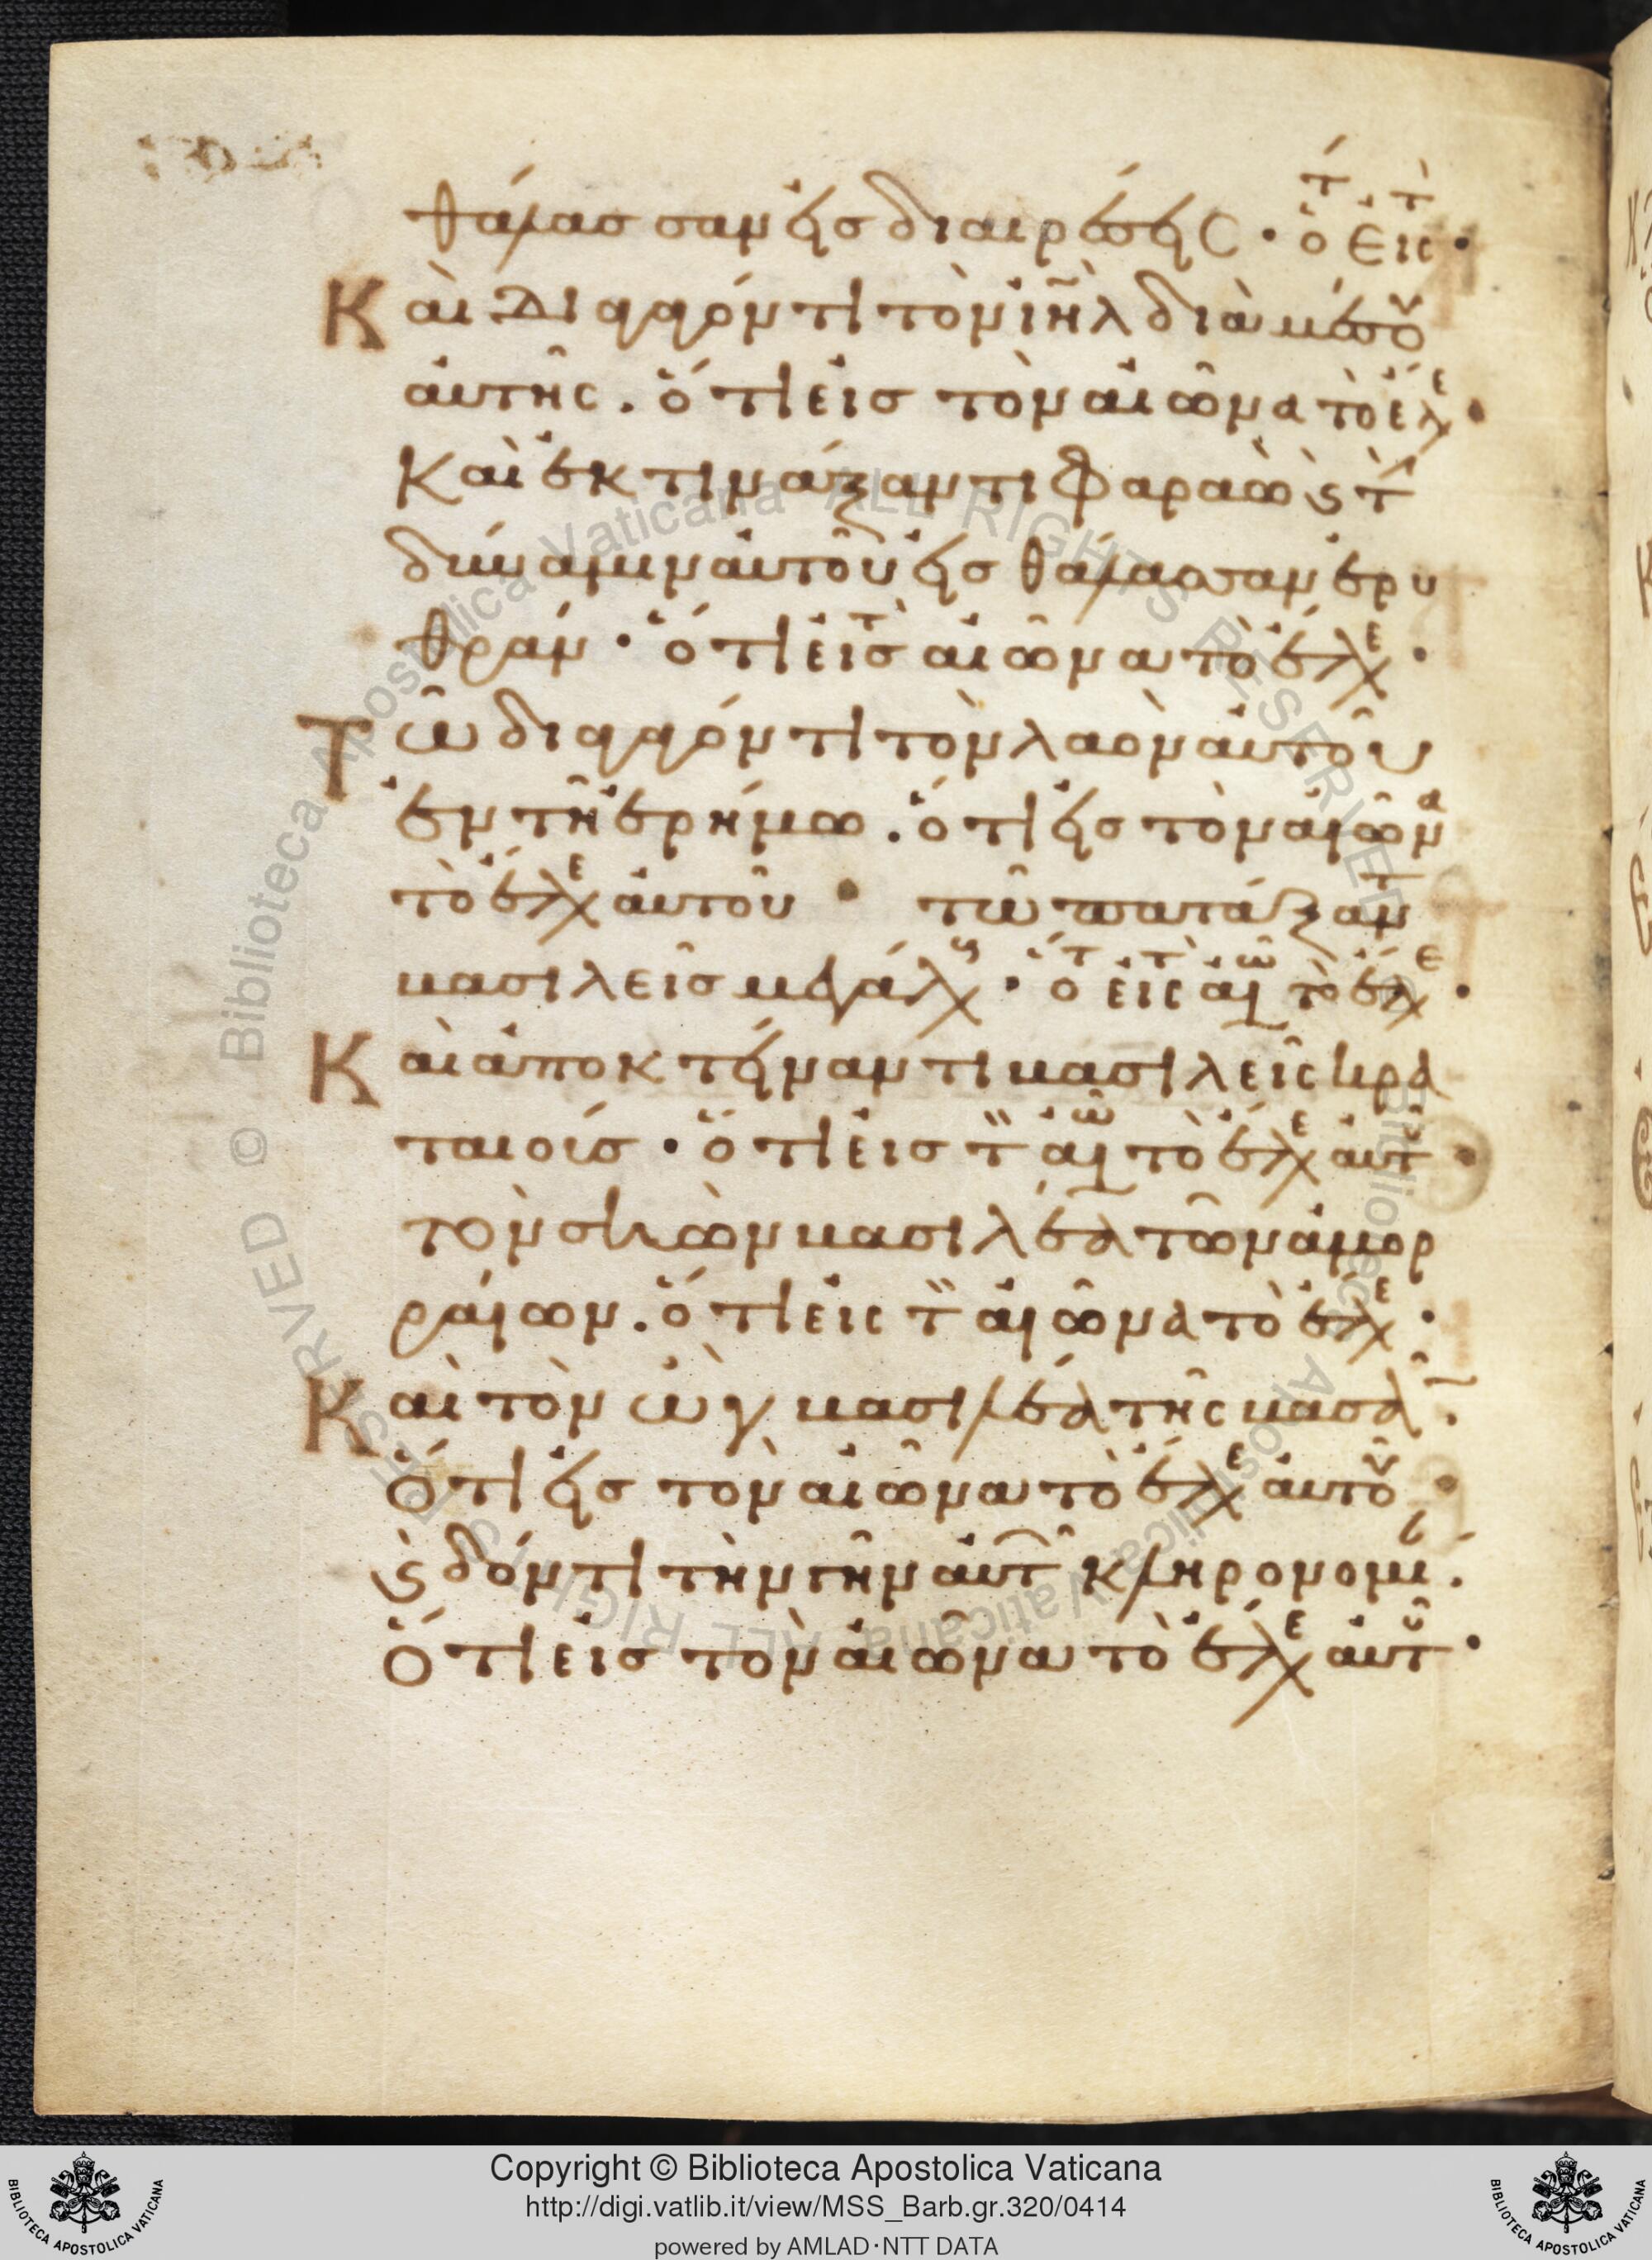 θάλασσαν εἰς διαιρέσεις · ὅτ εἰς τ ·
Καὶ διαγαγόντι τὸν ἰη̅λ διὰ μέσου
αὐτῆς . ὅτι εἰς τὸν αἰῶνα τὸ ἔλε ·
Καὶ ἐκτινάξαντι Φαραὼ ϛ τ
δύναμιν αὐτοῦ εἰς θάλασσαν ἐρυ
θράν · ὅτι εἰς τ αἰῶνα τὸ ἔλε ·
Τῶ διαγαγόντι τὸν λαὸν αὐτοῦ
ἐν τῆ ἐρήμω . ὅτι εἰς τὸν αἰῶνα
τὸ ἔλε αὐτοῦ · τῶ πατάξαντ
βασιλεῖς μεγάλς · ὅτ εἰς τ αἰω τὸ ἔλε ·
Καὶ ἀποκτείναντι βασιλεῖς κρα
ταιούς · ὅτι εἰς τ αἰω τὸ ἔλε αὐτ ·
τὸν σηὼν βασιλέα τῶν ἀμορ
ραίων . ὅτι εἰς τ αἰῶνα τὸ ἔλε ·
Καὶ τὸν ὢγ βασιλέα τῆς βασα .
Ὅτι εἰς τὸν αἰῶνα τὸ ἔλε αὐτοῦ ·
ϛ δόντι τὴν γῆν αὐτ κληρονομί .
Ὅτι εἰς τὸν αἰῶνα τὸ ἔλε αὐτ ·
Copyright © Biblioteca Apostolica Vaticana
http://digi.vatlib.it/view/MSS_Barb.gr.320/0414
powered by AMLAD·NTT DATA